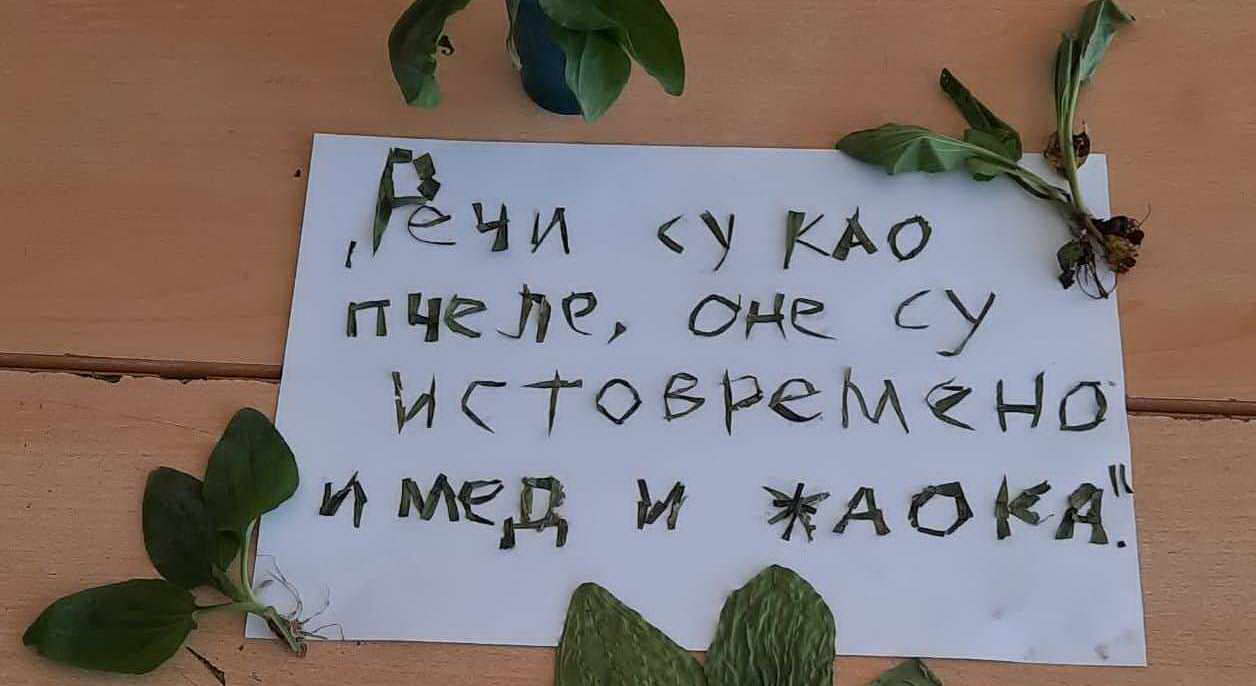 ,Речи су као
пчеле, оне су
истовремено
и мед и жаока."